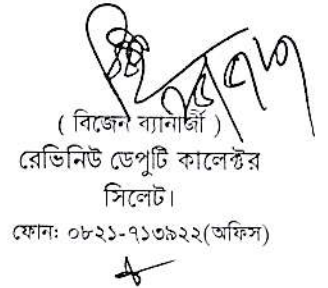 ( বিজেন ব্যানার্জী )
রেভিনিউ ডেপুটি কালেক্টর
সিলেট।
ফোন: ০৮২১-৭১৩৯২২(অফিস)